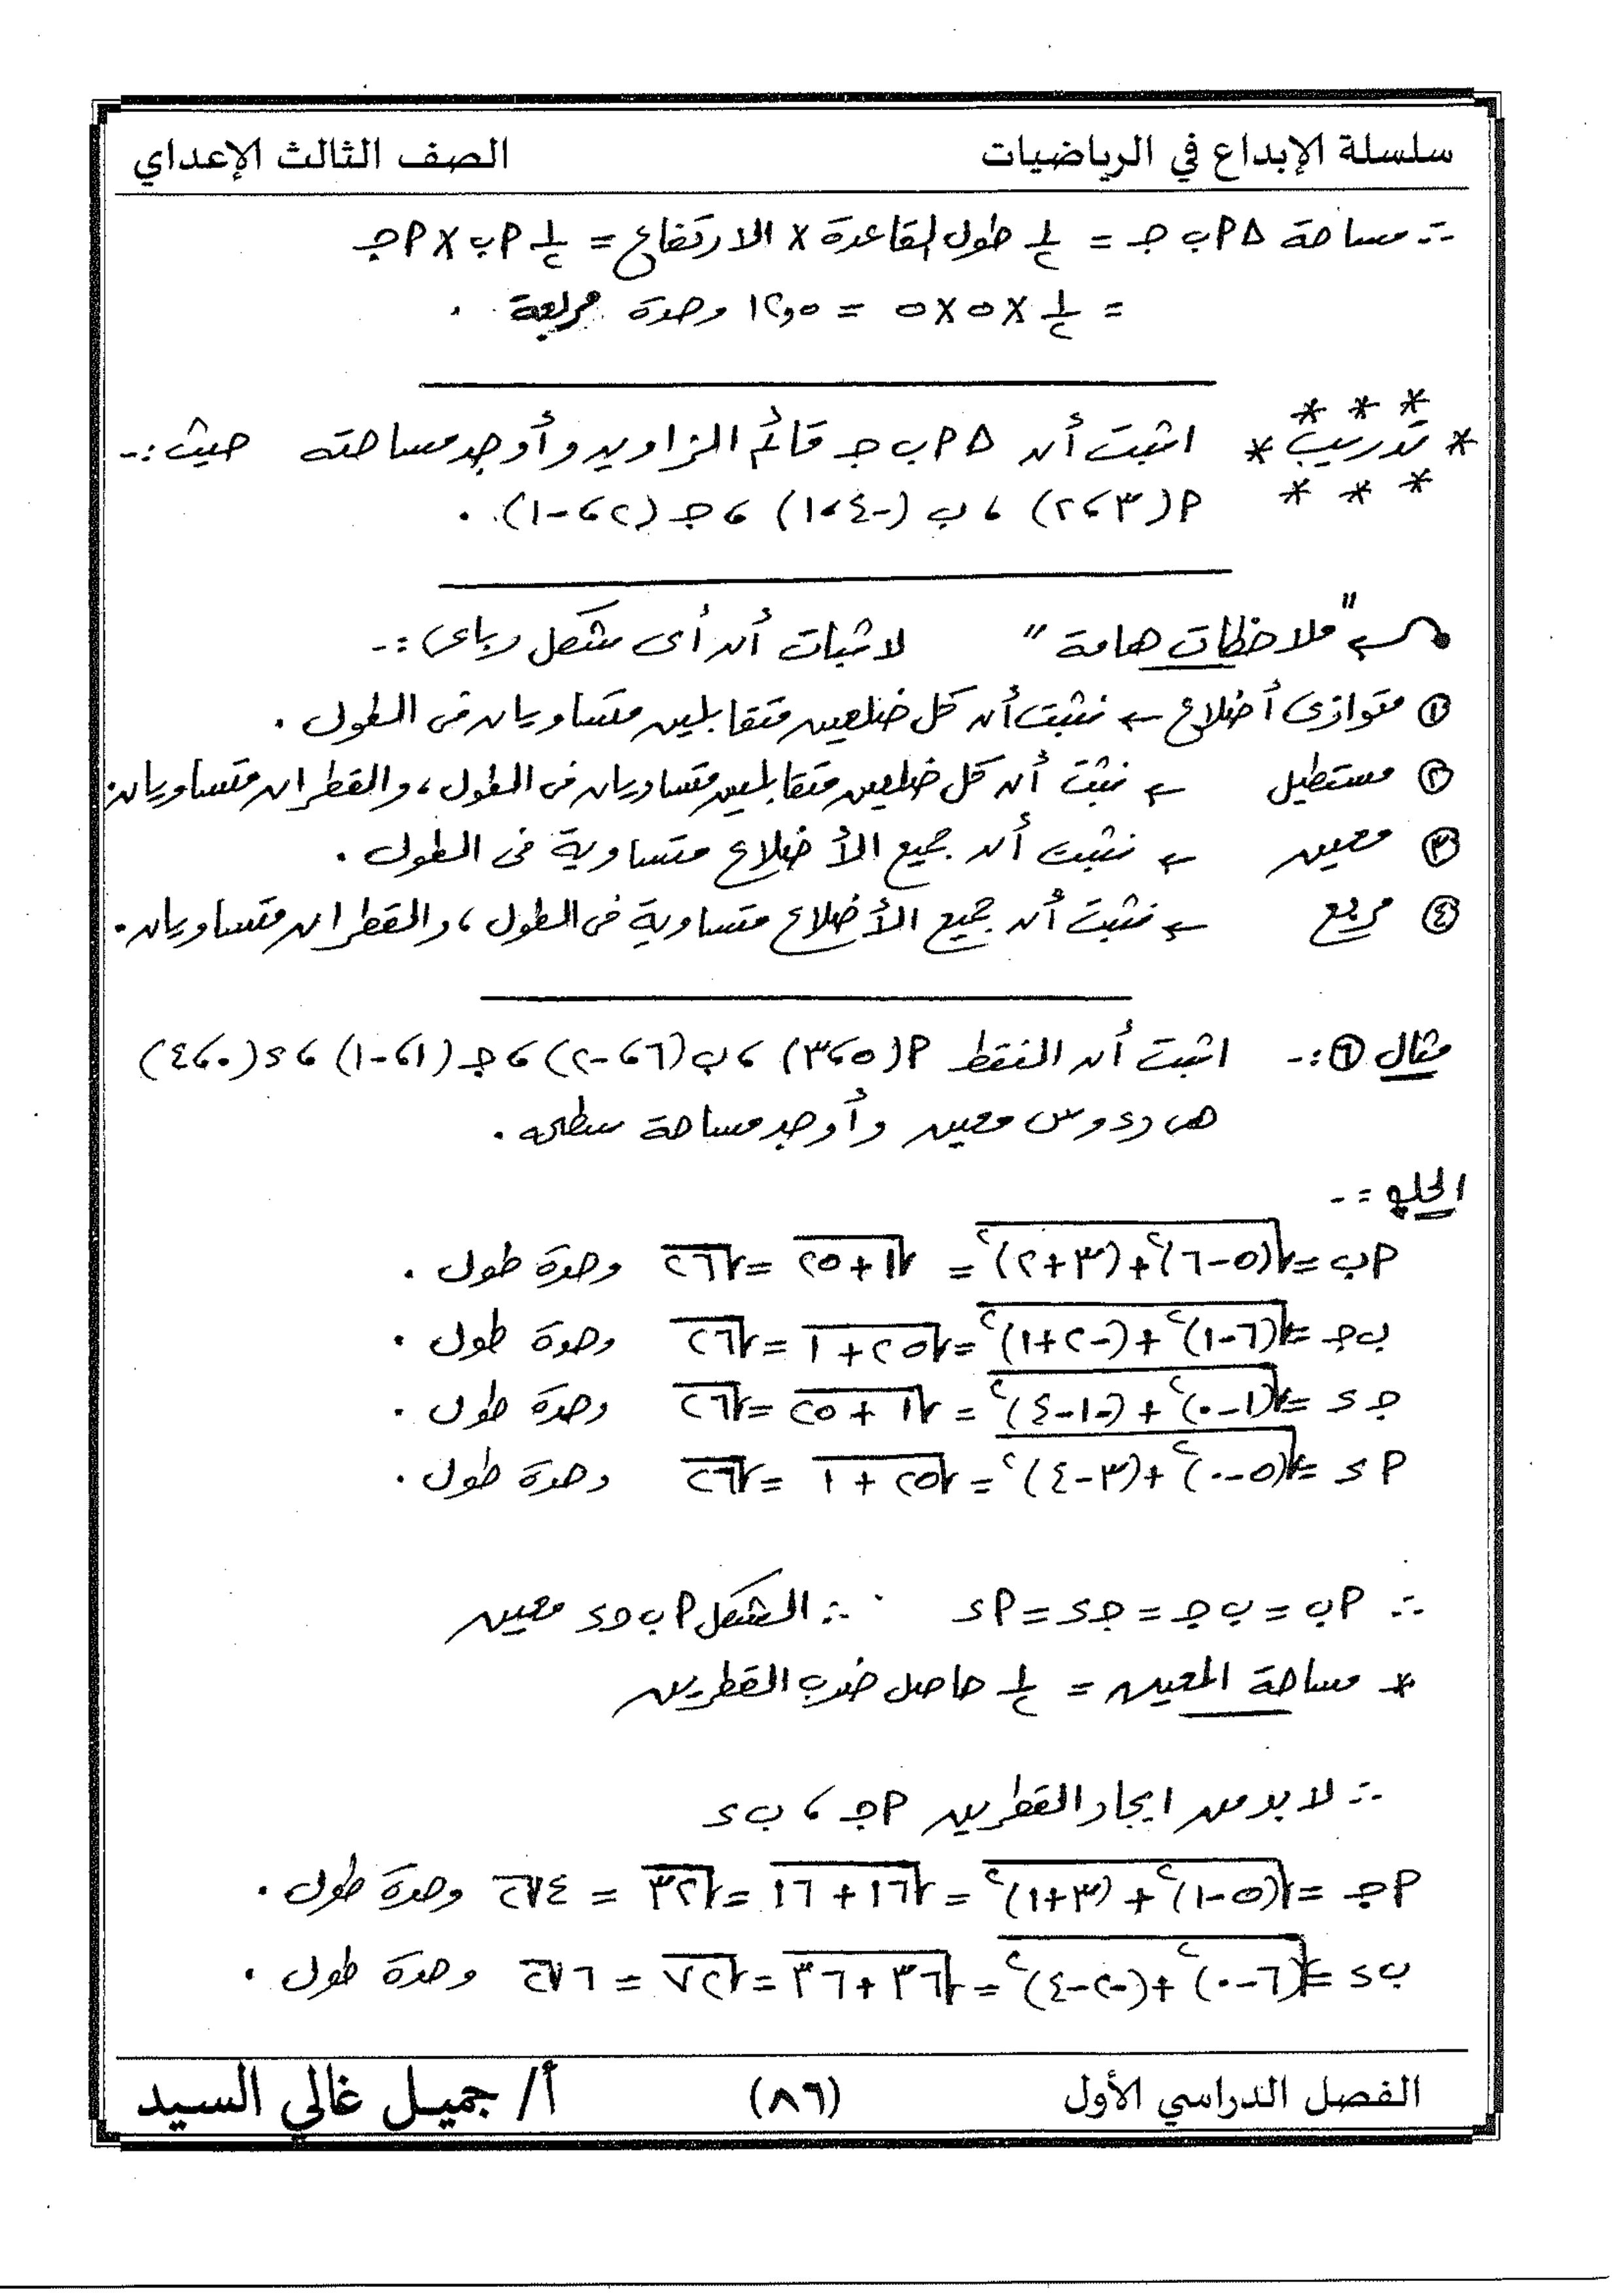 سلسلة الإبداع في الرياضيات
الصف الثالث الإعداي
∴ مساحة △ أ ب جـ = ١/٢ طول القاعدة × الارتفاع = ١/٢ أ ب × أ جـ
= ١/٢ × ٥ × ٥ = ١٢,٥ وحدة مربعة .
* * *
* تدريب * اثبت أن △ أ ب جـ قائم الزاويه وأوجد مساحته حيث :-
* * *
أ (٣ ، ٢) ، ب (-٤ ، ١) ، جـ (٢ ، -١) .
"ملاحظات هامة" لاثبات أن أى شكل رباعى :-
① متوازى أضلاع ← نثبت أن كل ضلعين متقابلين متساويان فى الطول .
② مستطيل ← نثبت أن كل ضلعين متقابلين متساويان فى الطول ، والقطران متساويان.
③ معين ← نثبت أن جميع الأضلاع متساوية فى الطول .
④ مربع ← نثبت أن جميع الأضلاع متساوية فى الطول ، والقطران متساويان .
مثال ⑥ :- اثبت أن النقط أ (٥ ، ٣) ، ب (٦ ، -٢) ، جـ (١ ، -١) ، د (٠ ، ٤)
هى رءوس معين وأوجد مساحة سطحه .
الحل :-
أ ب = √((٥-٦)² + (٣+٢)²) = √(١+٢٥) = √٢٦ وحدة طول .
ب جـ = √((٦-١)² + (-٢+١)²) = √(٢٥+١) = √٢٦ وحدة طول .
جـ د = √((١-٠)² + (-١-٤)²) = √(١+٢٥) = √٢٦ وحدة طول .
أ د = √((٥-٠)² + (٣-٤)²) = √(٢٥+١) = √٢٦ وحدة طول .
∴ أ ب = ب جـ = جـ د = أ د ∴ الشكل أ ب جـ د معين
* مساحة المعين = ١/٢ حاصل ضرب القطرين
∴ لا بد من ايجاد القطرين أ جـ ، ب د
أ جـ = √((٥-١)² + (٣+١)²) = √(١٦+١٦) = √٣٢ = ٤√٢ وحدة طول .
ب د = √((٦-٠)² + (-٢-٤)²) = √(٣٦+٣٦) = √٧٢ = ٦√٢ وحدة طول .
الفصل الدراسي الأول
(٨٦)
أ/ جميل غالي السيد